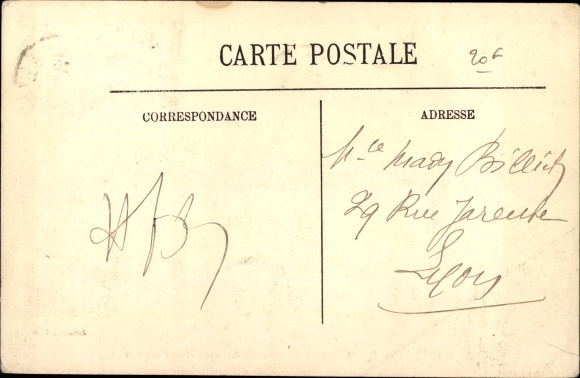 CARTE POSTALE
20 F
CORRESPONDANCE
ADRESSE
Mlle Mady Billiet
29 Rue Jarente
Lyon